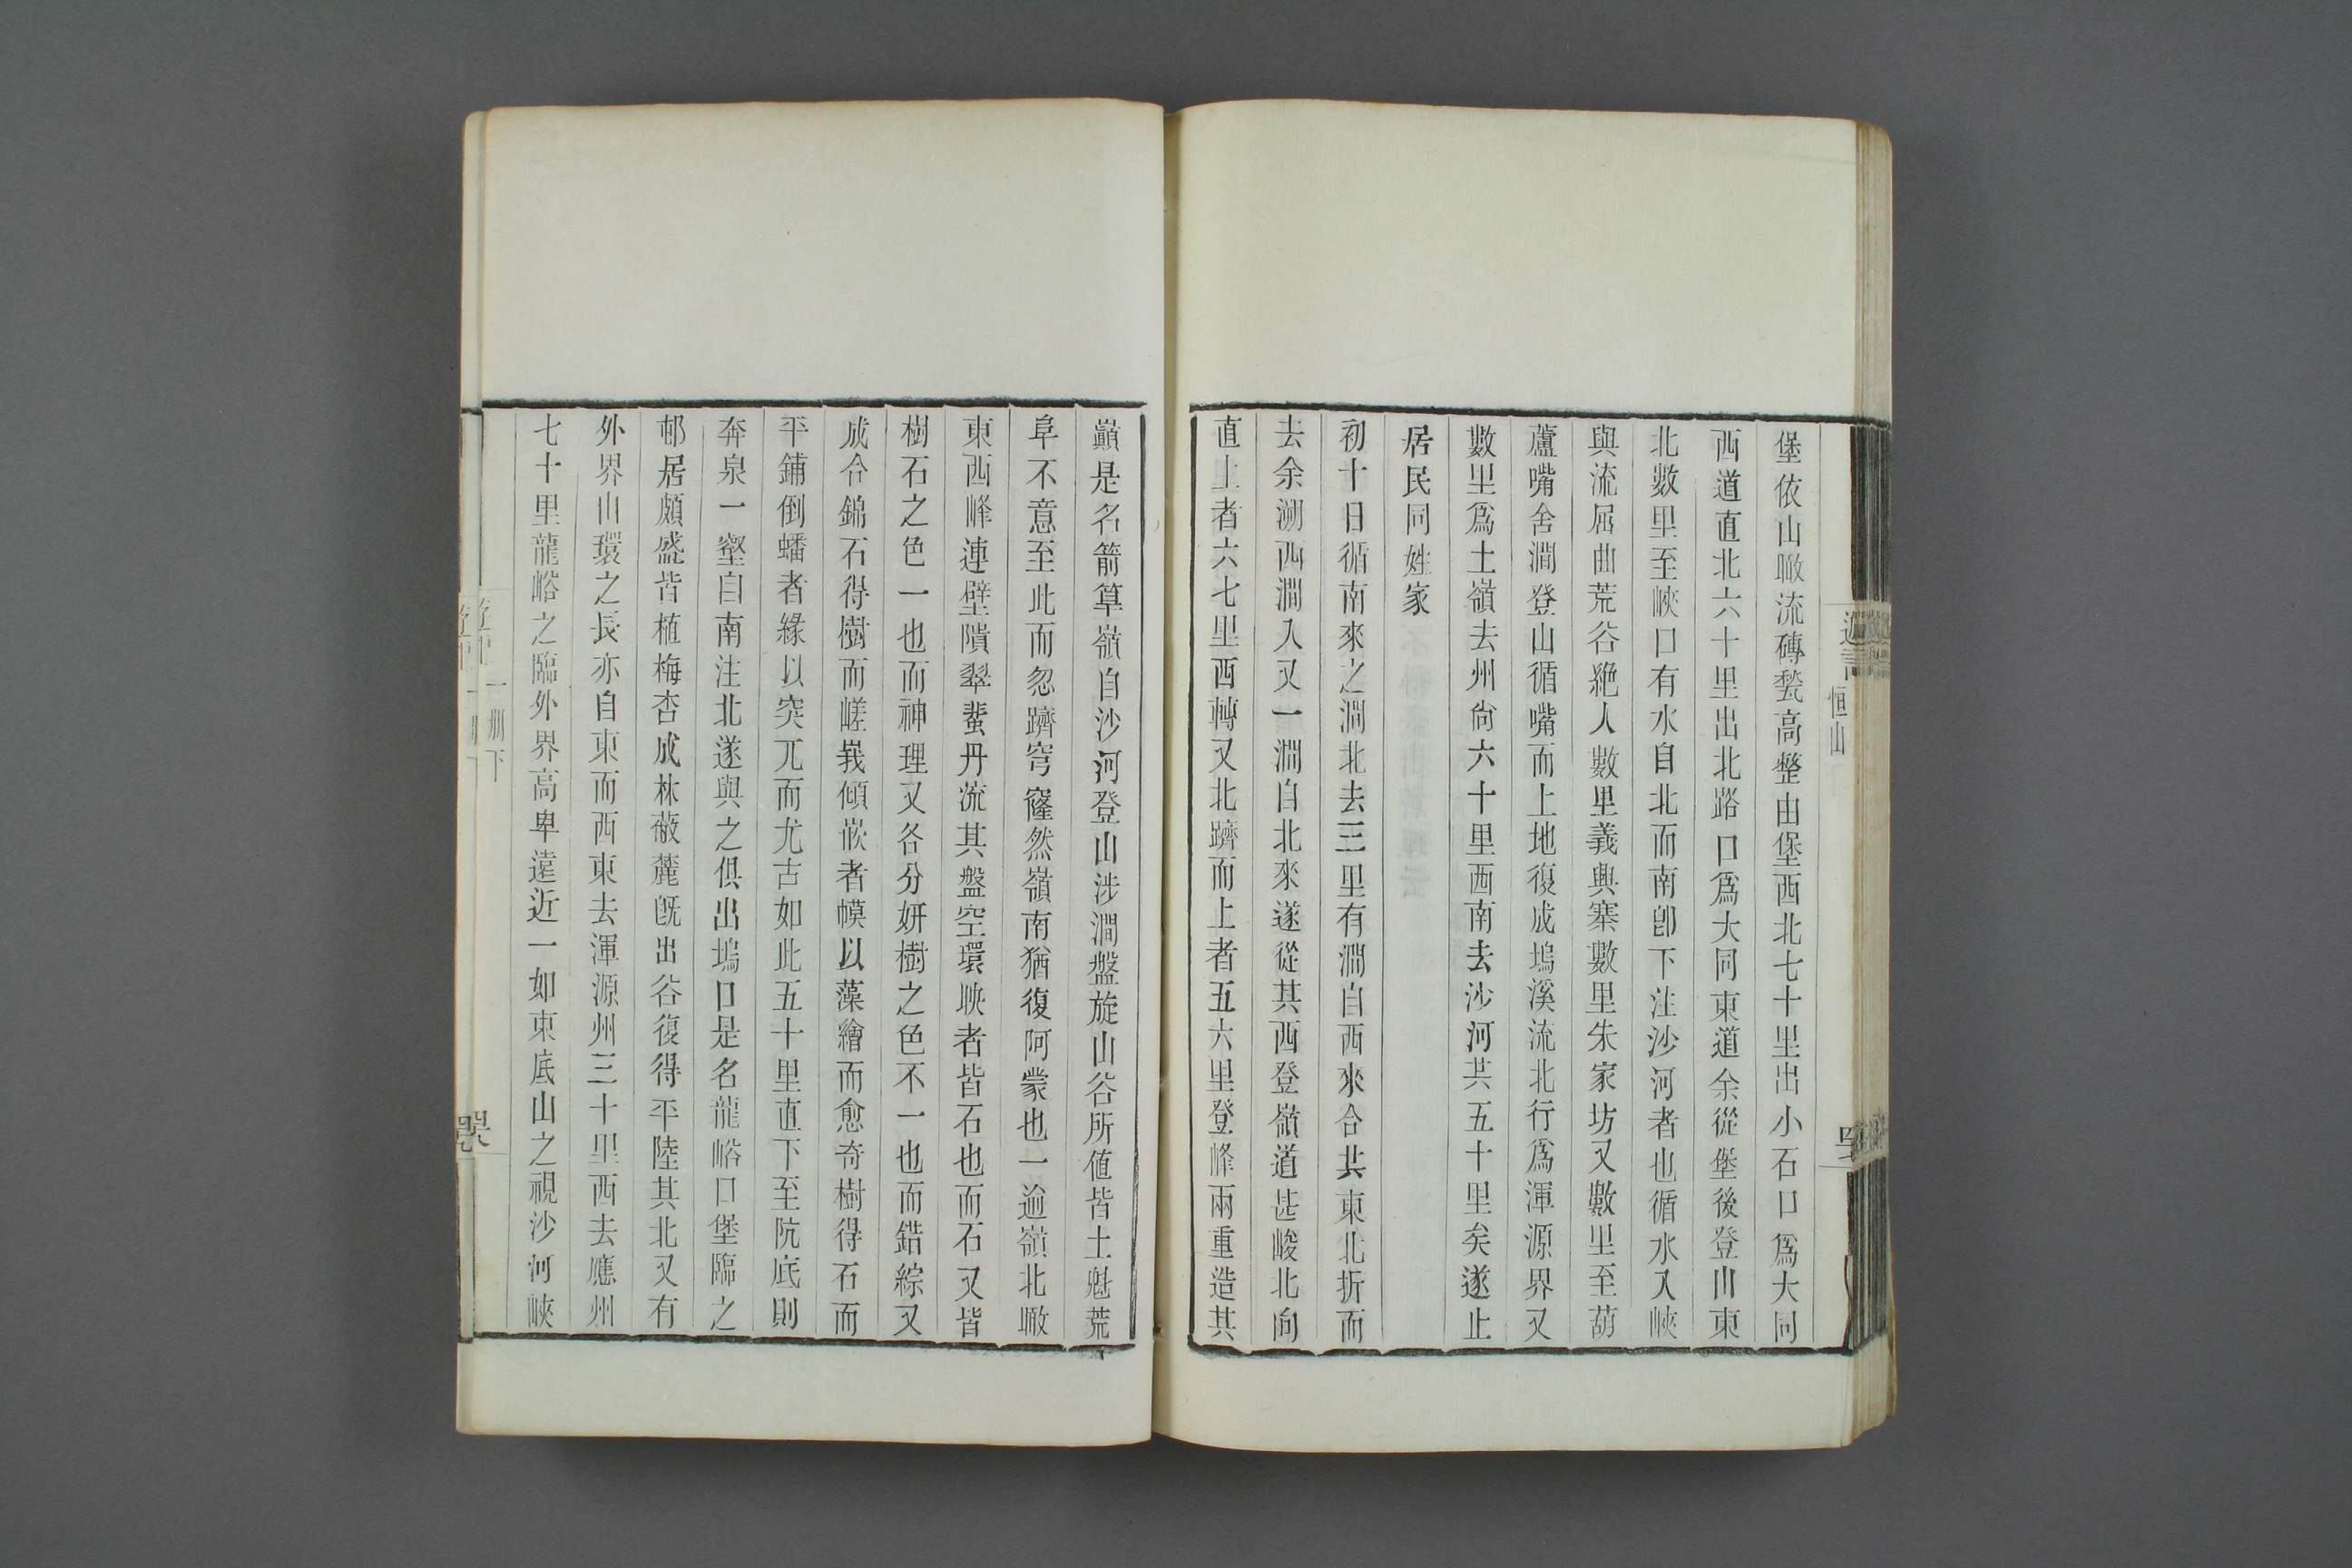 恒山
堡依山瞰流磚甃高整由堡西北七十里出小石口爲大同
西道直北六十里出北路口爲大同東道余從堡後登山東
北數里至峽口有水自北而南卽下注沙河者也循水入峽
與流屈曲荒谷絶人數里義興寨數里朱家坊又數里至葫
蘆嘴舍澗登山循嘴而上地復成塢溪流北行爲渾源界又
數里爲土嶺去州尙六十里西南去沙河共五十里矣遂止
居民同姓家
初十日循南來之澗北去三里有澗自西來合共東北折而
去余溯西澗入又一澗自北來遂從其西登嶺道甚峻北向
直上者六七里西轉又北躋而上者五六里登峰兩重造其
巓是名箭筸嶺自沙河登山涉澗盤旋山谷所值皆土魁荒
阜不意至此而忽躋穹窿然嶺南猶復阿蒙也一逾嶺北瞰
東西峰連壁隤翠蜚丹流其盤空環映者皆石也而石又皆
樹石之色一也而神理又各分妍樹之色不一也而錯綜又
成合錦石得樹而嵯峩傾嵌者幙以藻繪而愈奇樹得石而
平鋪倒蟠者緣以突兀而尤古如此五十里直下至阬底則
奔泉一壑自南注北遂與之俱出塢口是名龍峪口堡臨之
邨居頗盛皆植梅杏成林蔽麓旣出谷復得平陸其北又有
外界山環之長亦自東而西東去渾源州三十里西去應州
七十里龍峪之臨外界高卑遠近一如東底山之視沙河峽
一册下